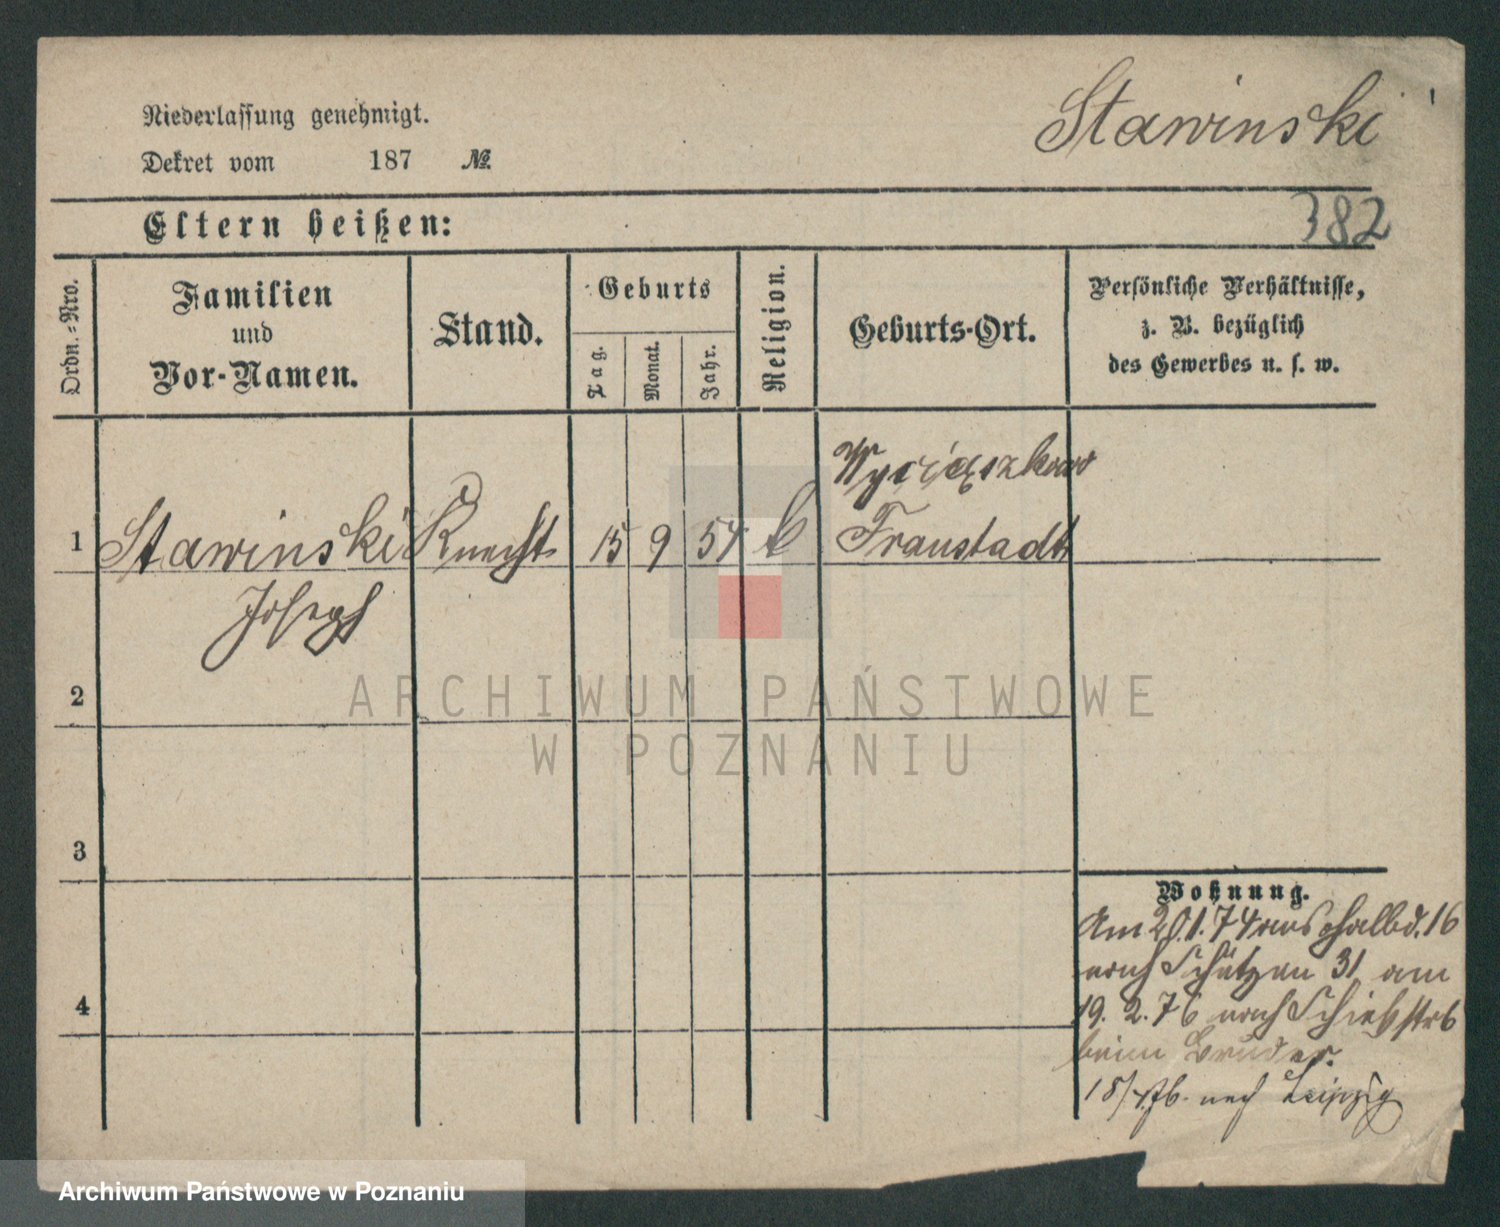 Niederlassung genehmigt.
Stawinski
Dekret vom 187 №.
Eltern heißen:
382
Ordn.-Nro.
Familien
und
Vor-Namen.
Stand.
Geburts
Tag.
Monat.
Jahr.
Religion.
Geburts-Ort.
Persönliche Verhältnisse,
z. B. bezüglich
des Gewerbes u. s. w.
1 Stawinski Knecht 15 9 54
Fraustadt
Joseph
2
3
4
Wohnung.
Am 20.1.74 aus halbd. 16
nach Schützen 31 am
19. 2. 76 nach Schießstr 6
beim Bruder.
nach Leipzig
ARCHIWUM PAŃSTWOWE
W POZNANIU
Archiwum Państwowe w Poznaniu